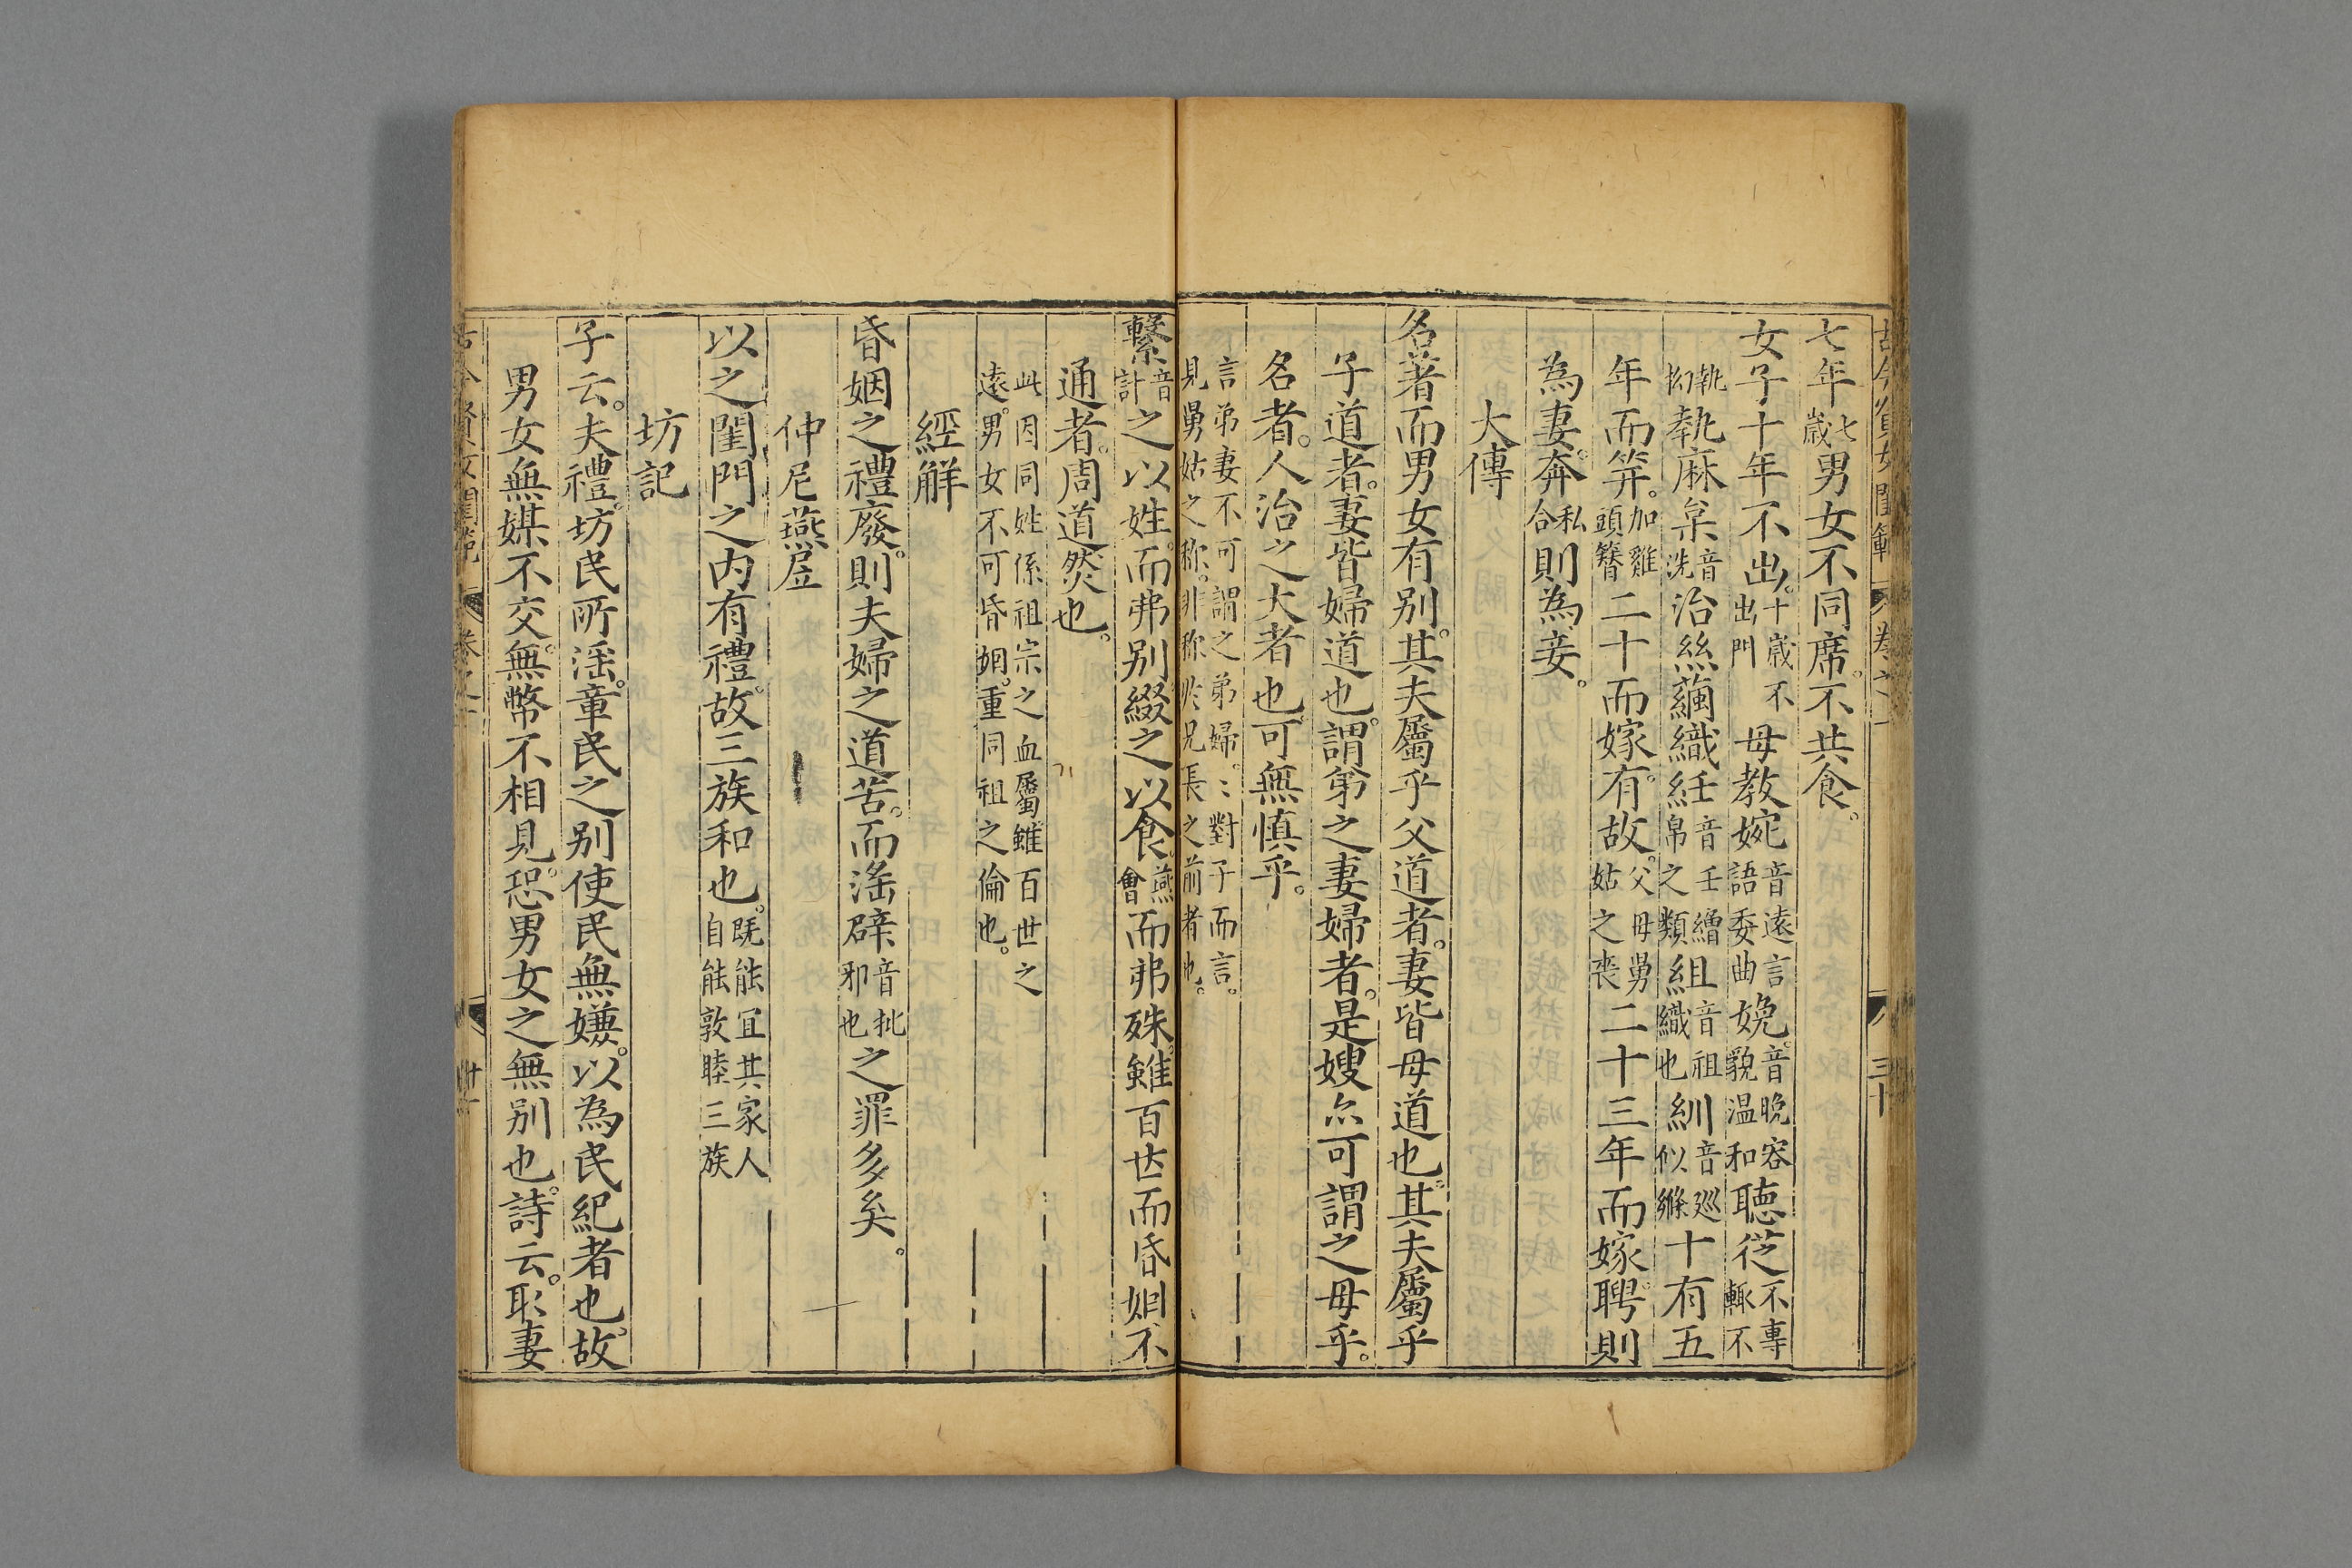 七年七歲男女不同席不共食
女子十年不出十歲不出門母教婉音遠言語委曲娩音晚容貌温和聽從不專輒不
執拗執麻枲音洗治絲繭織紝音壬繒帛之類組音祖織也紃音巡似絛十有五
年而笄加雞頭簪二十而嫁有故父母舅姑之喪二十三年而嫁聘則
為妻奔私合則為妾
大傳
名著而男女有别其夫屬乎父道者妻皆母道也其夫屬乎
子道者妻皆婦道也謂弟之妻婦者是嫂亦可謂之母乎
名者人治之大者也可無慎乎
言弟妻不可謂之弟婦〻對子而言
見舅姑之称非称於兄長之前者也
繫音計之以姓而弗别綴之以食燕會而弗殊雖百世而昏姻不
通者周道然也
此因同姓係祖宗之血屬雖百世之
遠男女不可昏姻重同祖之倫也
經解
昏姻之禮廢則夫婦之道苦而滛辟音批邪也之罪多矣
仲尼燕居
以之閨門之内有禮故三族和也既能宜其家人自能敦睦三族
坊記
子云夫禮坊民所滛章民之别使民無嫌以為民紀者也故
男女無媒不交無幣不相見恐男女之無别也詩云取妻
古今賢女閨範 卷之一 三十